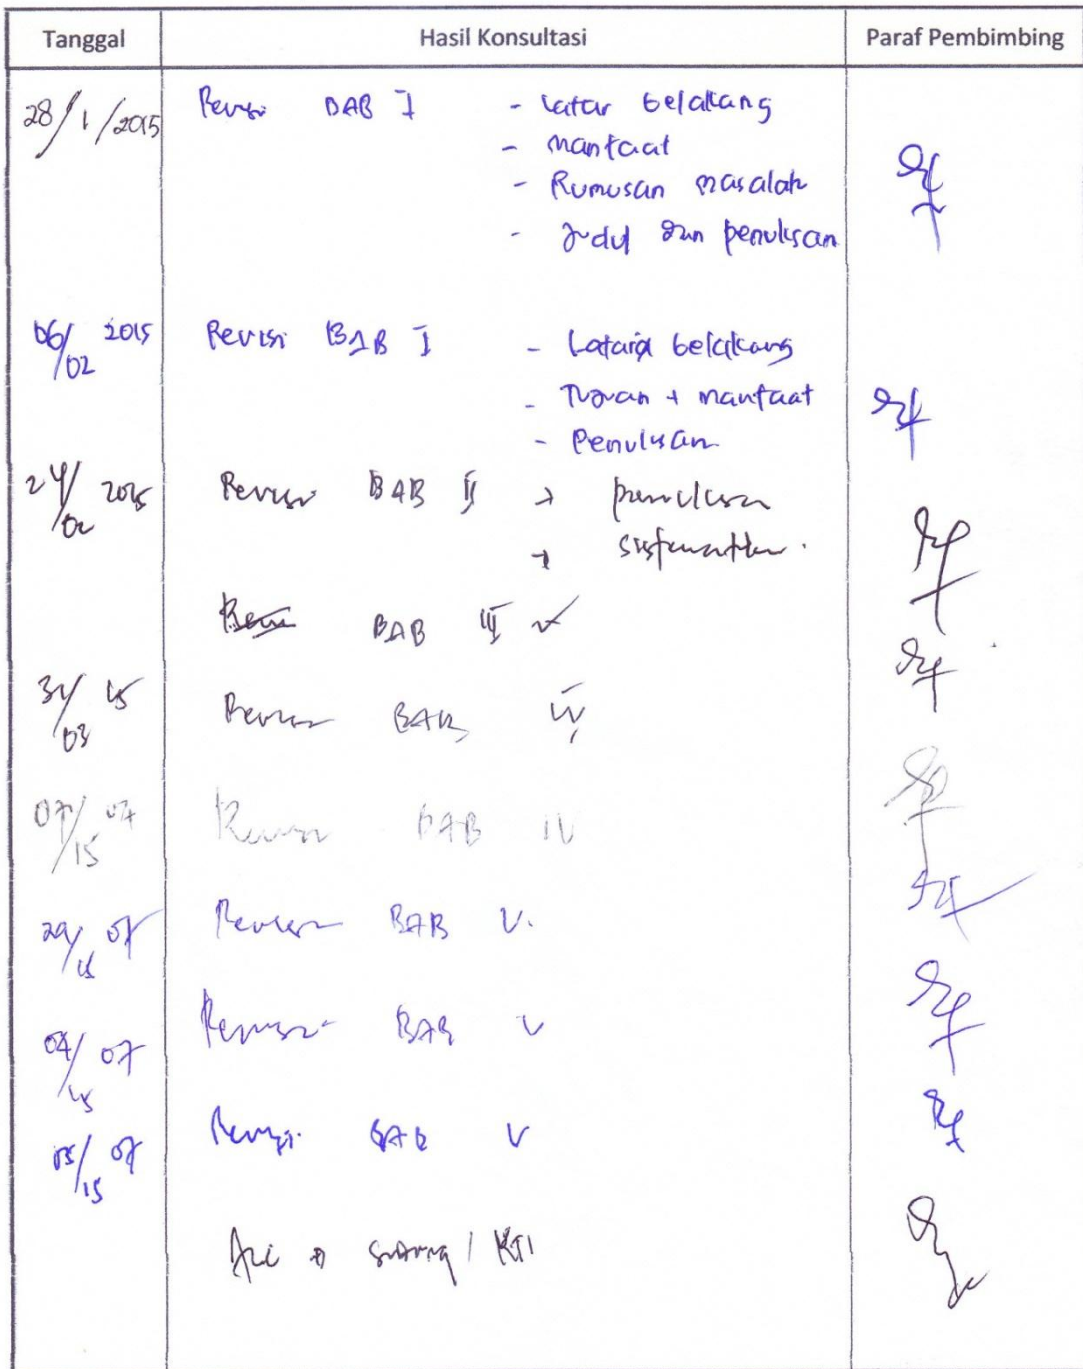 Tanggal Hasil Konsultasi Paraf Pembimbing
28/1/2015 Revisi BAB I - Latar belakang
- manfaat
- Rumusan masalah
- Judul dan penulisan
06/02 2015 Revisi BAB I - Latar belakang
- Tujuan + manfaat
- Penulisan
24/02 2015 Revisi BAB II → penulisan
→
BAB III ✓
31/03 15 Revisi BAB IV
07/15 Revisi BAB IV
Revisi BAB V.
07 Revisi BAB V
05/15 07 Revisi BAB V
Acc → sidang / KTI